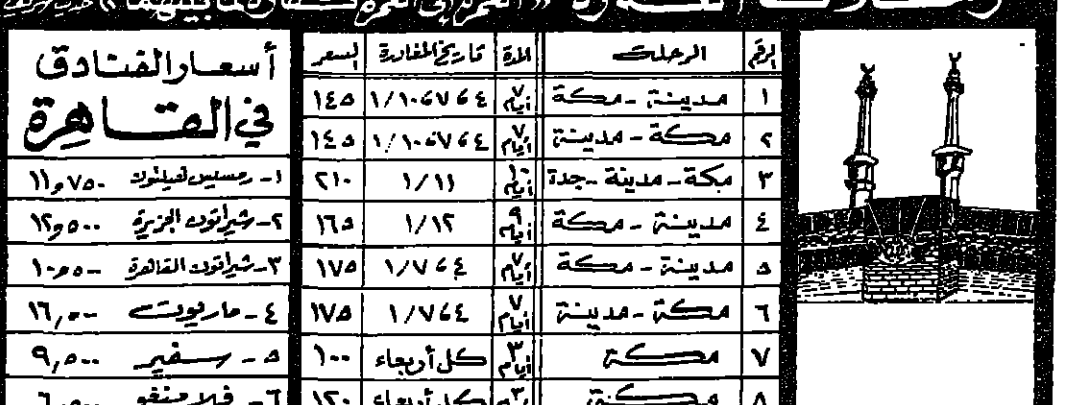 الرقم الرحلة المدة تاريخ المغادرة السعر
١ مدينة - مكة ٧ أيام ١/١٠،٧،٤ ١٤٥
٢ مكة - مدينة ٧ أيام ١/١٠،٧،٤ ١٤٥
٣ مكة - مدينة - جدة ١٠ أيام ١/١١ ٢١٠
٤ مدينة - مكة ٩ أيام ١/١٢ ١٦٥
٥ مدينة - مكة ٧ أيام ١/٧،٤ ١٧٥
٦ مكة - مدينة ٧ أيام ١/٧،٤ ١٧٥
٧ مكة ٣ أيام كل أربعاء ١٠٠
٨ مكة ٣ كل أربعاء ١٢٠
أسعار الفنادق
في القاهرة
١- رمسيس هيلتون ١١,٧٥٠
٢- شيراتون الجزيرة ١٢,٥٠٠
٣- شيراتون القاهرة ١٠,٥٠٠
٤- ماريوت ١٦,٠٠٠
٥- سفير ٩,٥٠٠